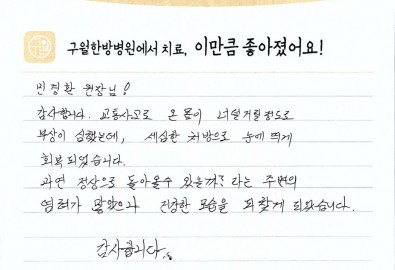 구월한방병원에서 치료, 이만큼 좋아졌어요!
민경환 원장님!
감사합니다. 교통사고로 온 몸이 너덜거릴정도로
부상이 심했는데, 세심한 처방으로 눈에 띄게
회복 되었습니다.
과연 정상으로 돌아올수 있을까? 라는 주변의
염려가 많았으나 건강한 모습을 되찾게 되었습니다.
감사합니다.